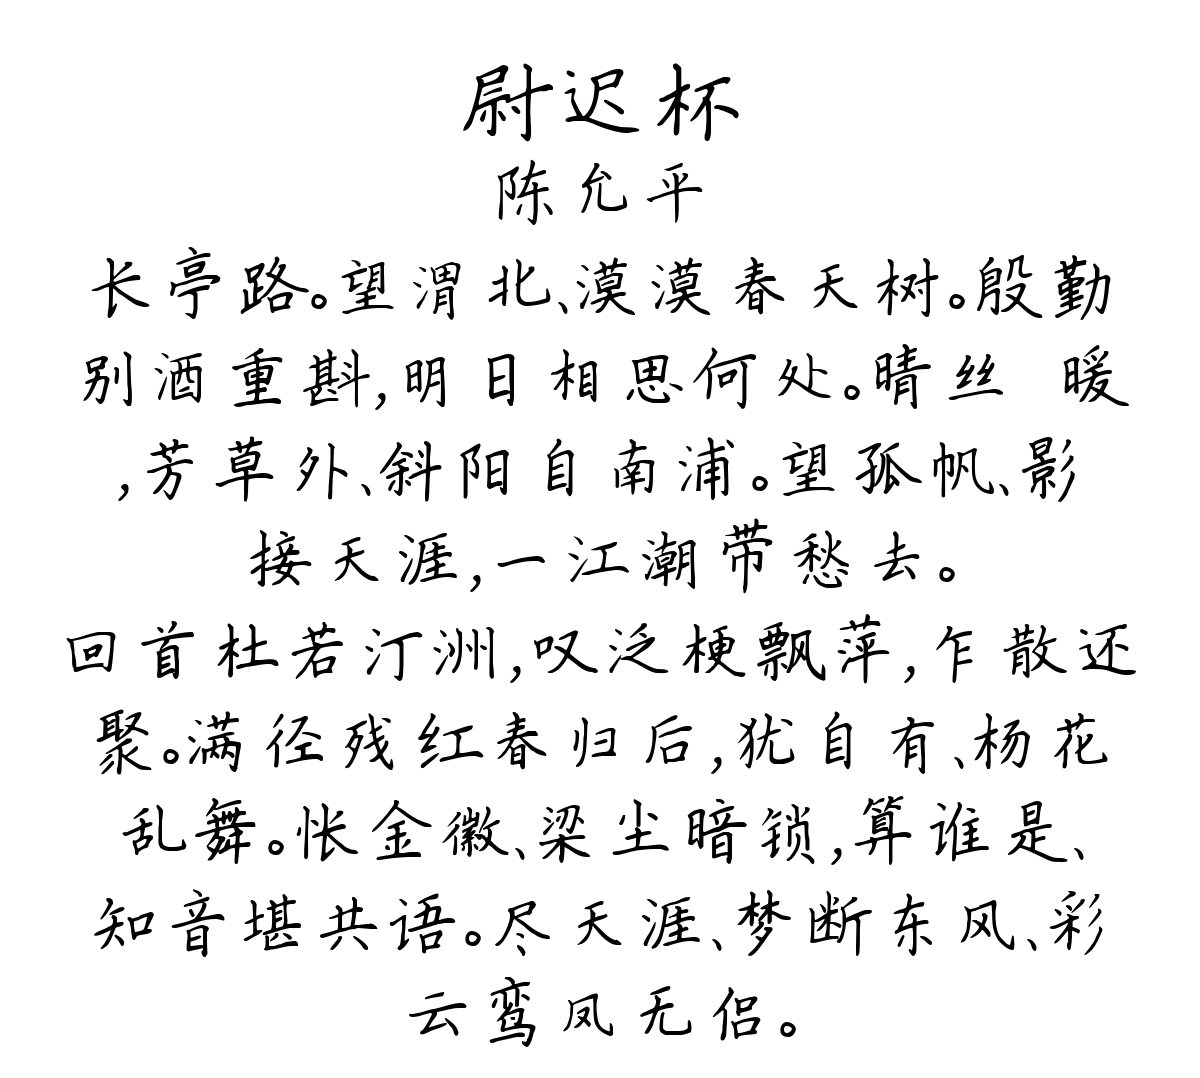 尉迟杯
陈允平
长亭路。望渭北、漠漠春天树。殷勤
别酒重斟,明日相思何处。晴丝 暖
,芳草外、斜阳自南浦。望孤帆、影
接天涯,一江潮带愁去。
回首杜若汀洲,叹泛梗飘萍,乍散还
聚。满径残红春归后,犹自有、杨花
乱舞。怅金徽、梁尘暗锁,算谁是、
知音堪共语。尽天涯、梦断东风、彩
云鸾凤无侣。